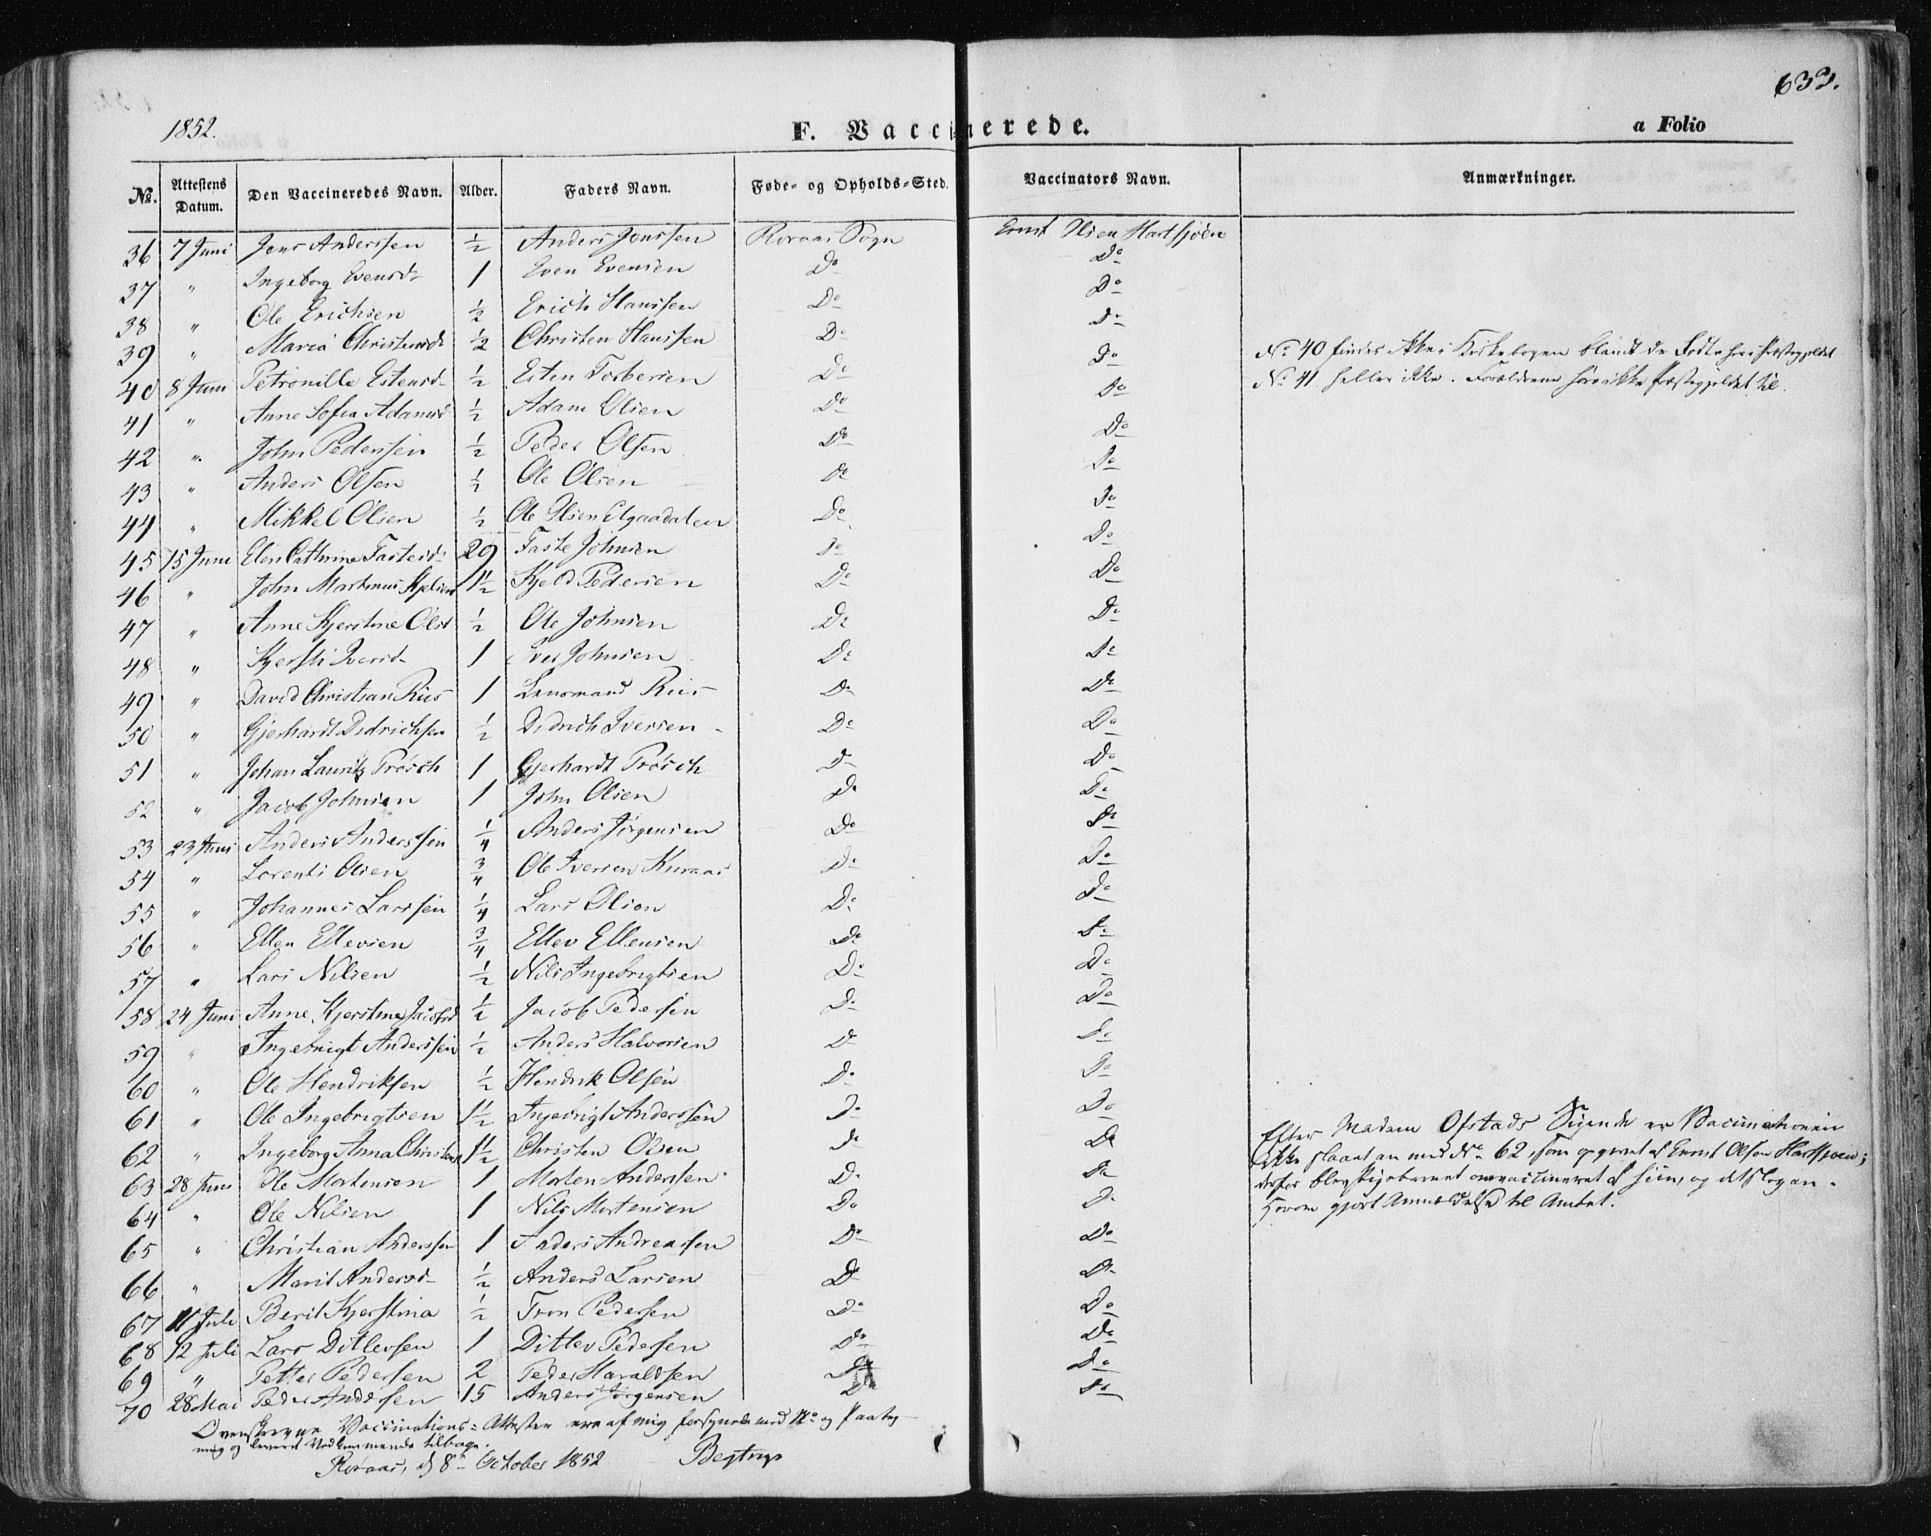 633.
1852.
F. Vaccinerede.
a Folio
No. Attestens Datum. Den Vaccineredes Navn. Alder. Faders Navn. Føde- og Opholds-Sted. Vaccinators Navn. Anmærkninger.
36 7 Juni Jens Anderssen ½ Anders Jenssen Roraas Sogn Ernst Olsen Hartsjøen
37 " Ingeborg Evensd 1 Even Evensen Do Do
38 " Ole Erichsen ½ Erich Hanssen Do Do
39 " Maria Christensd ½ Christen Hanssen Do Do
40 8 Juni Petronille Estensd ½ Esten Torbersen Do Do No 40 findes ikke i Kirkebogen blandt de Fødte her i Præstegjeldet
41 " Anne Sofia Adamsd ½ Adam Olsen Do Do No 41 heller ikke. Forældrene høre ikke Præstegjeldet til.
42 " John Pedersen ½ Peder Olsen Do Do
43 " Anders Olsen ½ Ole Olsen Do Do
44 " Mikkel Olsen ½ Ole Olsen Elgaadalen Do Do
45 15 Juni Elen Cathrine Fastesd 29 Faste Johnsen Do Do
46 " John Martinus Kjelsen 1½ Kjeld Pedersen Do Do
47 " Anne Kjerstine Olsd ½ Ole Johnsen Do Do
48 " Kjersti Iversd 1 Iver Johnsen Do Do
49 " David Christian Riis 1 Lensmand Riis Do Do
50 " Gjerhardt Didrichsen ½ Didrich Iversen Do Do
51 " Johan Lauritz Prösch 1 Gjerhardt Prösch Do Do
52 " Jacob Johnsen 1 John Olsen Do Do
53 23 Juni Anders Anderssen ¼ Anders Jørgensen Do Do
54 " Lorents Olsen ¾ Ole Iversen Kuraas Do Do
55 " Johannes Larssen ¼ Lars Olsen Do Do
56 " Ellen Ellevsen ¾ Ellev Ellensen Do Do
57 " Lars Nilsen ½ Nils Ingebrigtsen Do Do
58 24 Juni Anne Kjerstine Jacobsd ½ Jacob Pedersen Do Do
59 " Ingebrigt Anderssen ½ Anders Halvorsen Do Do
60 " Ole Hendriksen ½ Hendrik Olsen Do Do
61 " Ole Ingebrigtsen 1½ Ingebrigt Anderssen Do Do
62 " Ingeborg Anna Christensd 1½ Christen Olsen Do Do
63 28 Juni Ole Mortensen 1 Morten Anderssen Do Do
64 " Ole Nilsen 1 Nils Mortensen Do Do
Efter Madam Ofstads Sigende er Vaccinationen
ikke slaaet an med No 62, som opgivet af Ernst Olsen Hartsjøen;
derfor blev Pigebarnet omvaccineret af hiin, og det slog an.
Herom gjort Anmældelse til Amtet.
65 " Christian Anderssen 1 Anders Andreassen Do Do
66 " Marit Andersd ½ Anders Larsen Do Do
67 11 Juli Berit Kjerstina ½ Tron Pedersen Do Do
68 12 Juli Lars Ditlevsen 1 Ditlev Pedersen Do Do
69 " Petter Pedersen 2 Peder Haraldsen Do Do
70 28 Mai Peder Anderssen 15 Anders Jørgensen Do Do
Ovenskrevne Vaccinations-Attester ere af mig forsynede med No og Paateg-
ning og leveret Vedkommende tilbage.
Roraas, d 8 October 1852 Begtrup